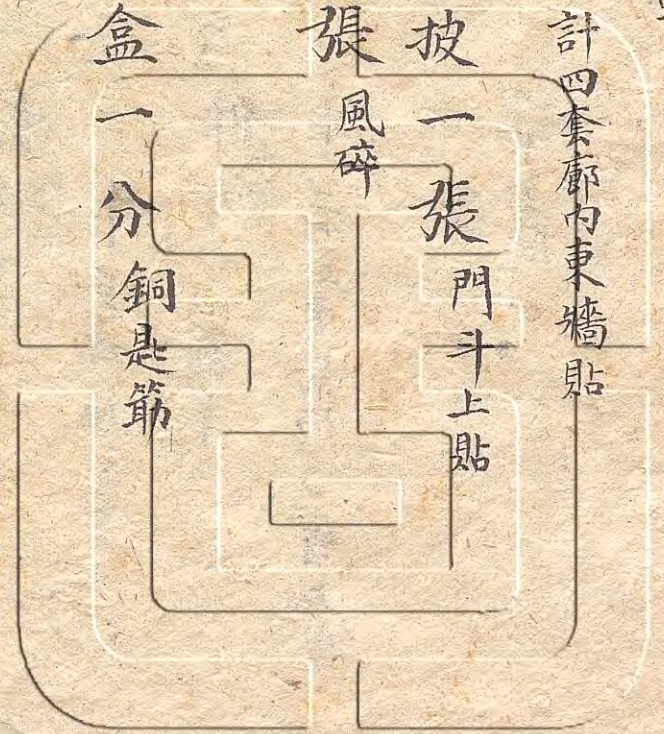 計四套廊内東牆貼
披一張門斗上貼
張風碎
盒一分銅匙筯